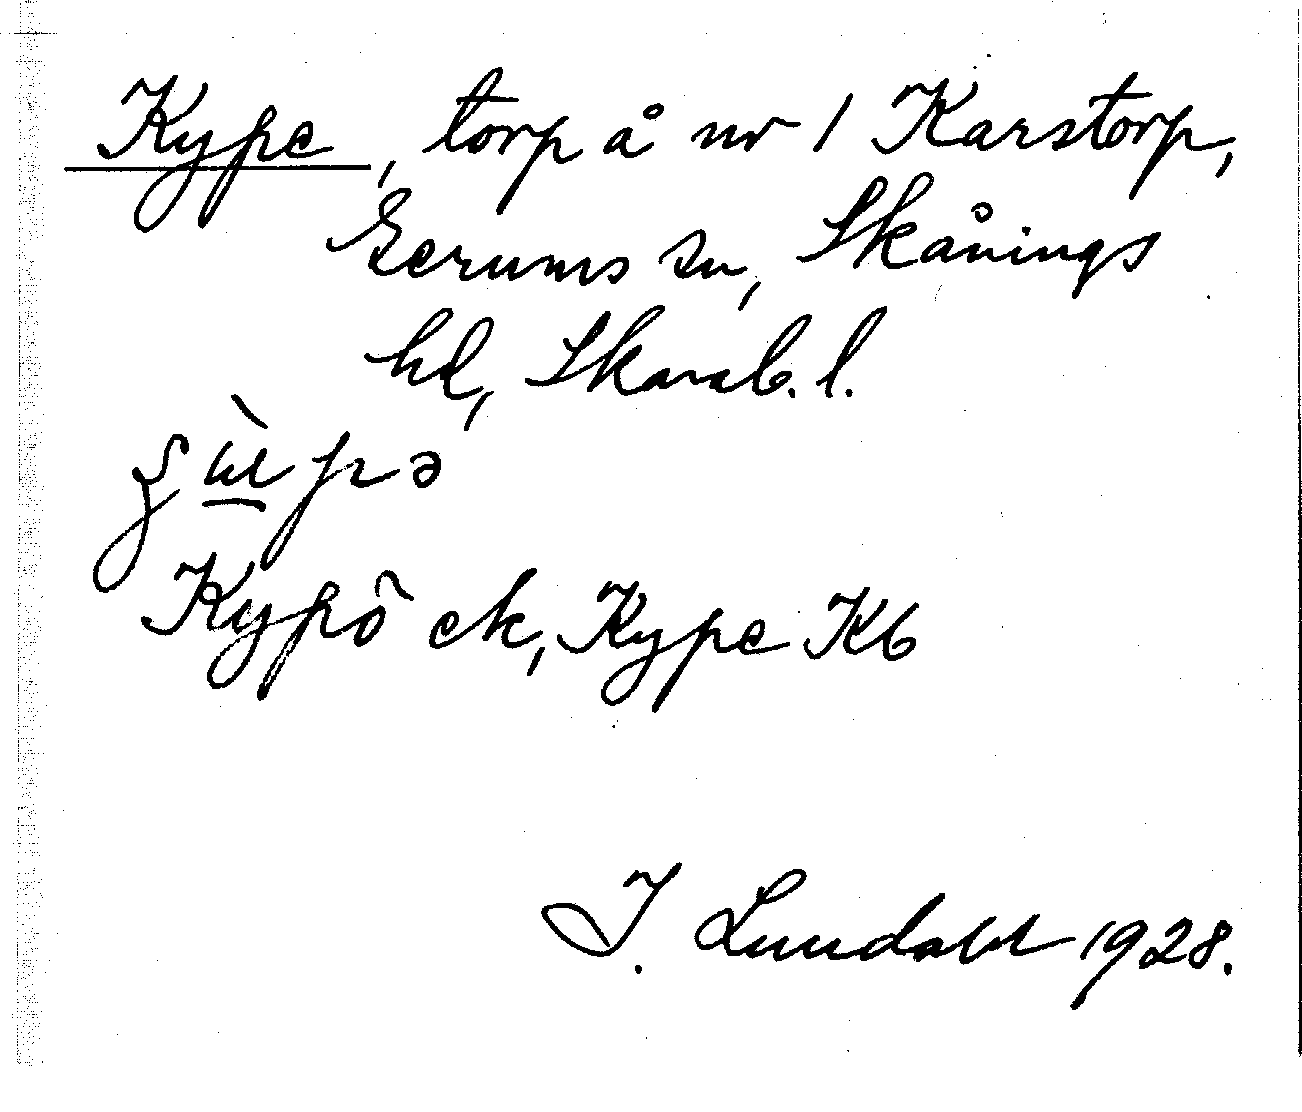 Kype, torp å nr 1 Karstorp,
Eerums sn, Skånings
hd, Skarab. l.
Kypö ek, Kype Kb
I. Lundahl 1928.